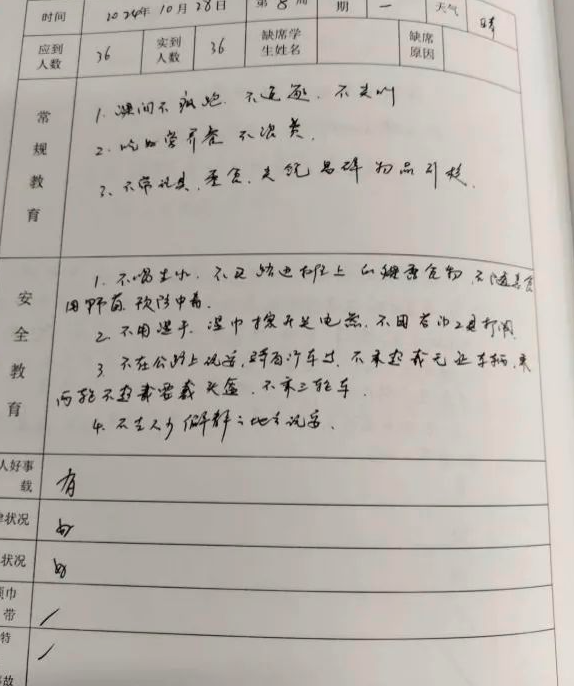 时间 2024年10月28日 第8周 期 一 天气 晴
应到人数 36 实到人数 36 缺席学生姓名 缺席原因
常规教育
1. 课间不疯跑、不追逐、不尖叫
2. 吃好营养餐 不浪费.
3. 不带玩具、零食、尖锐易碎物品到校.
安全教育
1. 不喝生水、不买路边摊上的 零食
用野菌 预防中毒.
2. 不用湿手、湿巾 开关电器、不用 打闹.
3 不在公路上玩耍, 不乘超载无证车辆, 乘
两轮不超载要戴头盔、不乘三轮车.
4. 不去人少僻静之地去玩耍.
人好事
载
有
状况
好
状况
好
巾
带
/
特
/
故